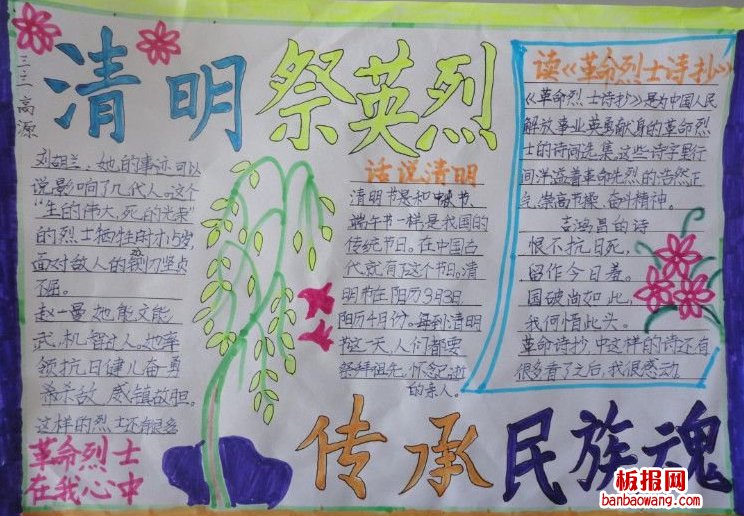 清明祭英烈
三三高源
刘胡兰、她的事迹可以
说影响了几代人。这个
"生的伟大,死的光荣"
的烈士牺牲时才15岁,
面对敌人的铡刀坚贞
不屈。
赵一曼她能文能
武,机智过人。她率
领抗日健儿奋勇
杀敌,威镇敌胆。
这样的烈士还有很多
革命烈士
在我心中
话说清明
清明节是和中秋节
端午节一样是我国的
传统节日。在中国古
代就有了这个节日。清
明节在阳历3月3日,
阳历4月份。每到清明
这一天,人们都要
祭拜祖先,怀念已逝
的亲人。
读《革命烈士诗抄》
《革命烈士诗抄》是为中国人民
解放事业英勇献身的革命烈
士的诗词选集,这些诗字里行
间洋溢着革命先烈的浩然正
气,崇高节操,奋斗精神。
吉鸿昌的诗
恨不抗日死,
留作今日羞。
国破尚如此,
我何惜此头。
革命诗抄,中这样的诗还有
很多看了之后,我很感动
传承民族魂
板报网
banbaowang.com